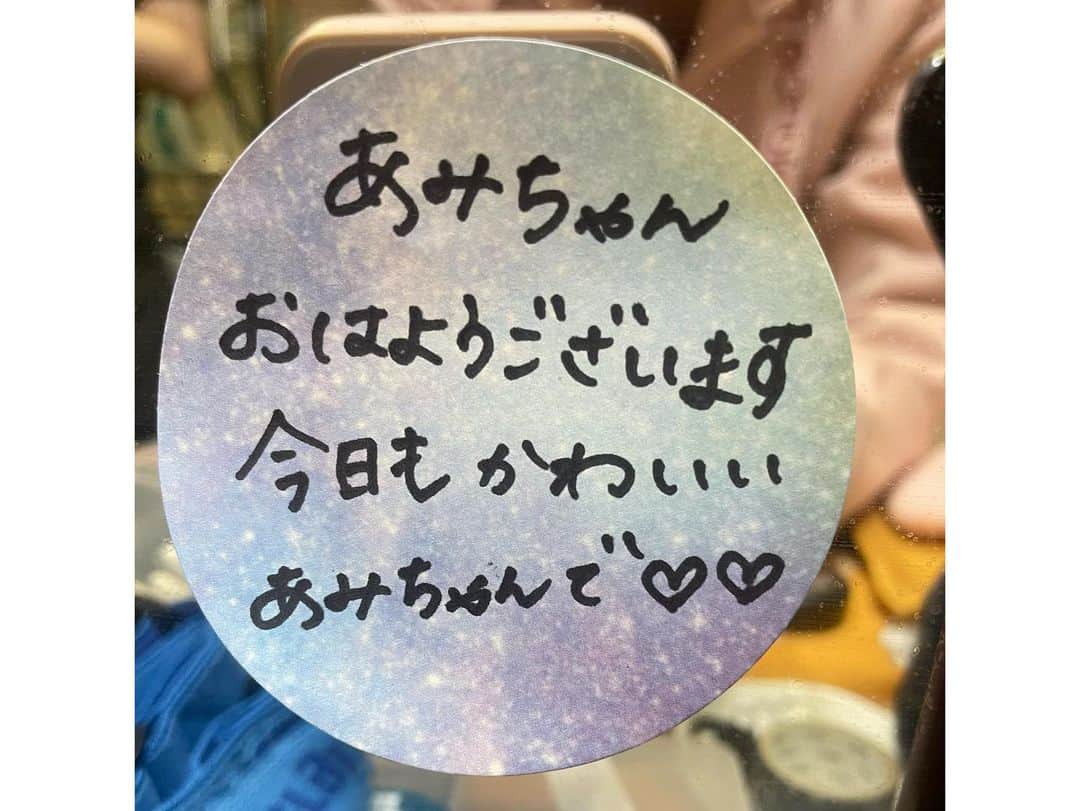 あみちゃん
おはようございます
今日もかわいい
あみちゃんで♡♡